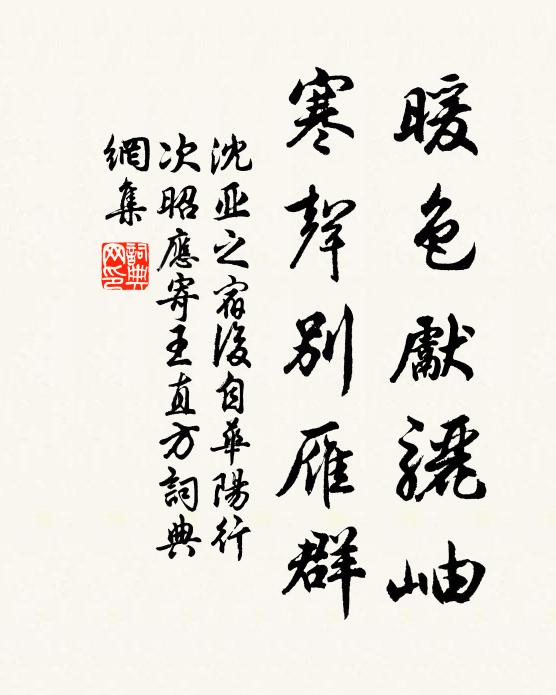 暖色獻驪岫
寒聲別雁群
沈亚之宿後自華陽行
次昭應寄王直方詞典
網集
詞典网印